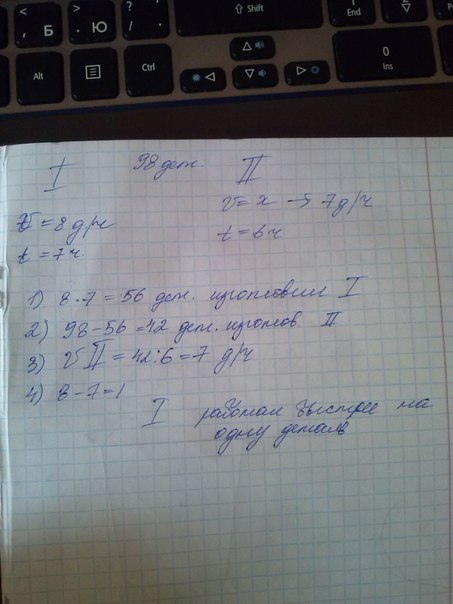 < , Б
> . Ю
? / .
⇧ Shift
1 End
Alt
Ctrl
0 Ins
I 98 дет. II
v = 8 д/ч
t = 7 ч.
v = x → 7 д/ч
t = 6 ч
1) 8·7 = 56 дет. изготовил I
2) 98 - 56 = 42 дет. изготов. II
3) v II = 42 : 6 = 7 д/ч
4) 8 - 7 = 1
I работал быстрее на
одну деталь